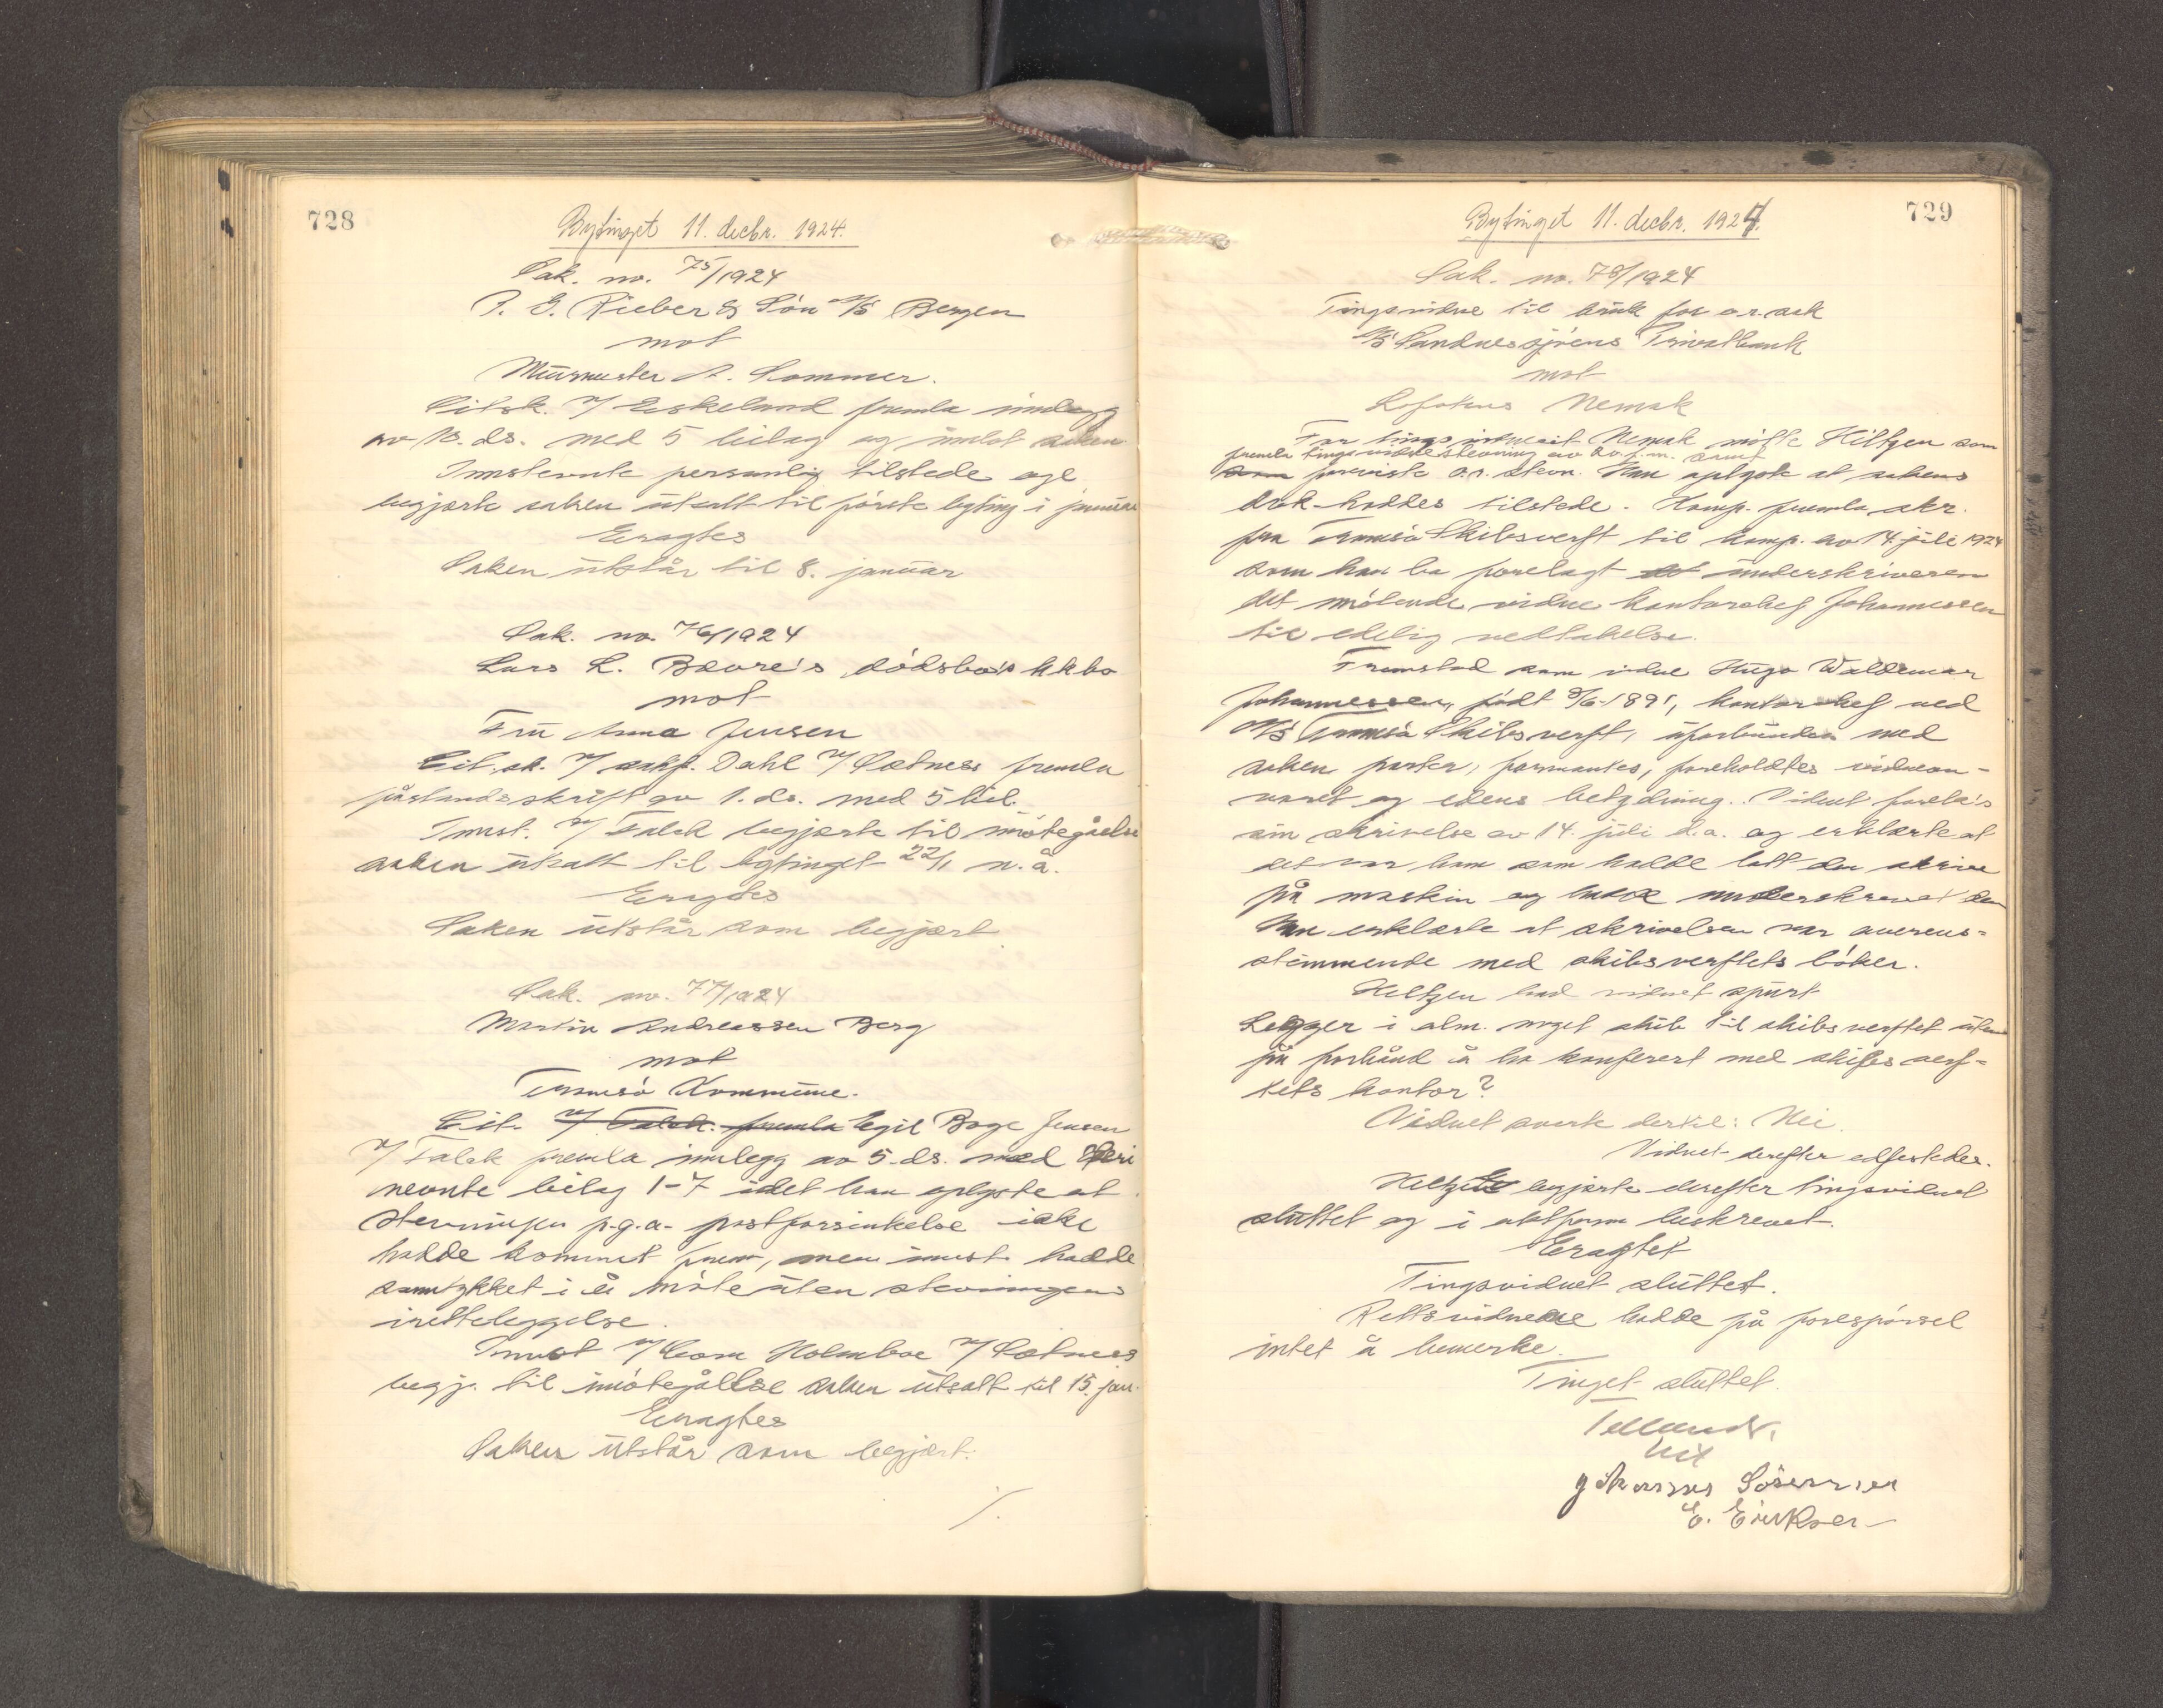 728
Bytinget 11. decbr. 1924.
Sak. no. 75/1924
P. G. Rieber & Søn A/S Bergen
mot
Murmester A. Sommer.
Citsk. v/ Eskeland fremla innlegg
av 10. ds. med 5 bilag og innlot saken
Innstevnte personlig tilstede
begjærte saken utsatt til første byting i januar
Eragtes
Saken utstår til 8. januar
Sak. no. 76/1924
Lars L. Bavre's dødsbo's kkbo
mot
Fru Anna Jensen
Cit. sk. v/ sakf. Dahl v/ Sætness fremla
påstandsskrift av 1. ds. med 5 bil.
Innst. v/ Falck begjærte til imøtegåelse
saken utsatt til bytinget 22/1 n. å.
Eragtes
Saken utstår som begjært
Sak. no. 77/1924
Martin Andreassen Berg
mot
Tromsø Kommune.
Cit. v/ Falck. fremla Egil Boge Jensen
v/ Falck fremla innlegg av 5. ds. med deri
nevnte bilag 1-7 idet han oplyste at
stevningen p.g.a. postforsinkelse ikke
hadde kommet frem, men innst. hadde
samtykket i å møte uten stevningens
iretteleggelse.
Innst v/ Coxn Holmboe v/ Sætness
begj. til imøtegåelse saken utsatt til 15. jan.
Eragtes
Saken utstår som begjært.
729
Bytinget 11. decbr. 1924.
Sak. no. 78/1924
Tingsvidne til bruk for o.r.sak
A/S Sandnessjøens Privatbank
mot
Lofotens Nemak
For tingsvidnecit. Nemak møtte Hiltzen som
fremla tingsvidnestevning av 20. f.m. samt
som foreviste o.r. stevn. Han oplyste at sakens
dok. haddes tilstede. Komp. fremla skr.
fra Tromsø Skibsverft til komp. av 14. juli 1924
som han ba forelagt det underskriveren
det møtende vidne kontorchef Johannessen
til edelig vedtakelse.
Fremstod som vidne Hugo Waldemar
Johannessen, født 9/6-1891, kontorchef ved
A/S Tromsø Skibsverft, uforbunden med
saken parter, formantes, foreholdtes vidnean-
svaret og edens betydning. Vidnet forela's
sin skrivelse av 14. juli d.a. og erklærte at
det var ham som hadde latt den skrive
på maskin og hadde underskrevet den
Han erklærte at skrivelsen var overens-
stemmende med skibsverftets bøker.
Heltzen bad vidnet spurt
Legger i alm. noget skib til skibsverftet uten
på forhånd å ha konferert med skibsverf-
tets kontor?
Vidnet svarte dertil: Nei.
Vidnet derefter edfestedes.
Heltzen begjærte derefter tingsvidnet
sluttet og i aktform beskrevet.
Eragtet
Tingsvidnet sluttet.
Rettsvidnene hadde på forespørsel
intet å bemerke.
Tinget sluttet.
Johannes Sørensen
E. Eriksen